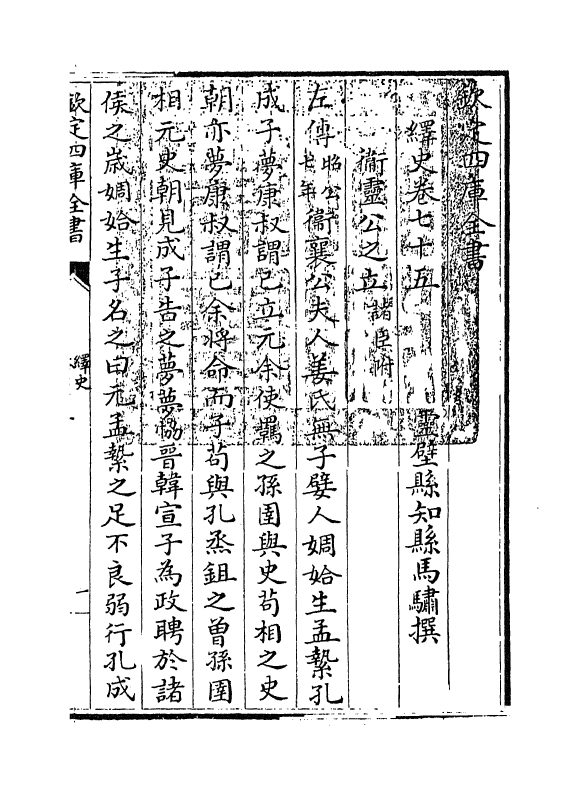 欽定四庫全書
繹史卷七十五 靈壁縣知縣馬驌撰
衛靈公之立諸臣附
左傳昭公七年衛襄公夫人姜氏無子嬖人婤姶生孟縶孔
成子夢康叔謂已立元余使羈之孫圉與史苟相之史
朝亦夢康叔謂已余將命而子苟與孔烝鉏之曾孫圉
相元史朝見成子告之夢夢協晉韓宣子為政聘於諸
侯之歲婤姶生子名之曰元孟縶之足不良弱行孔成
欽定四庫全書
繹史
一